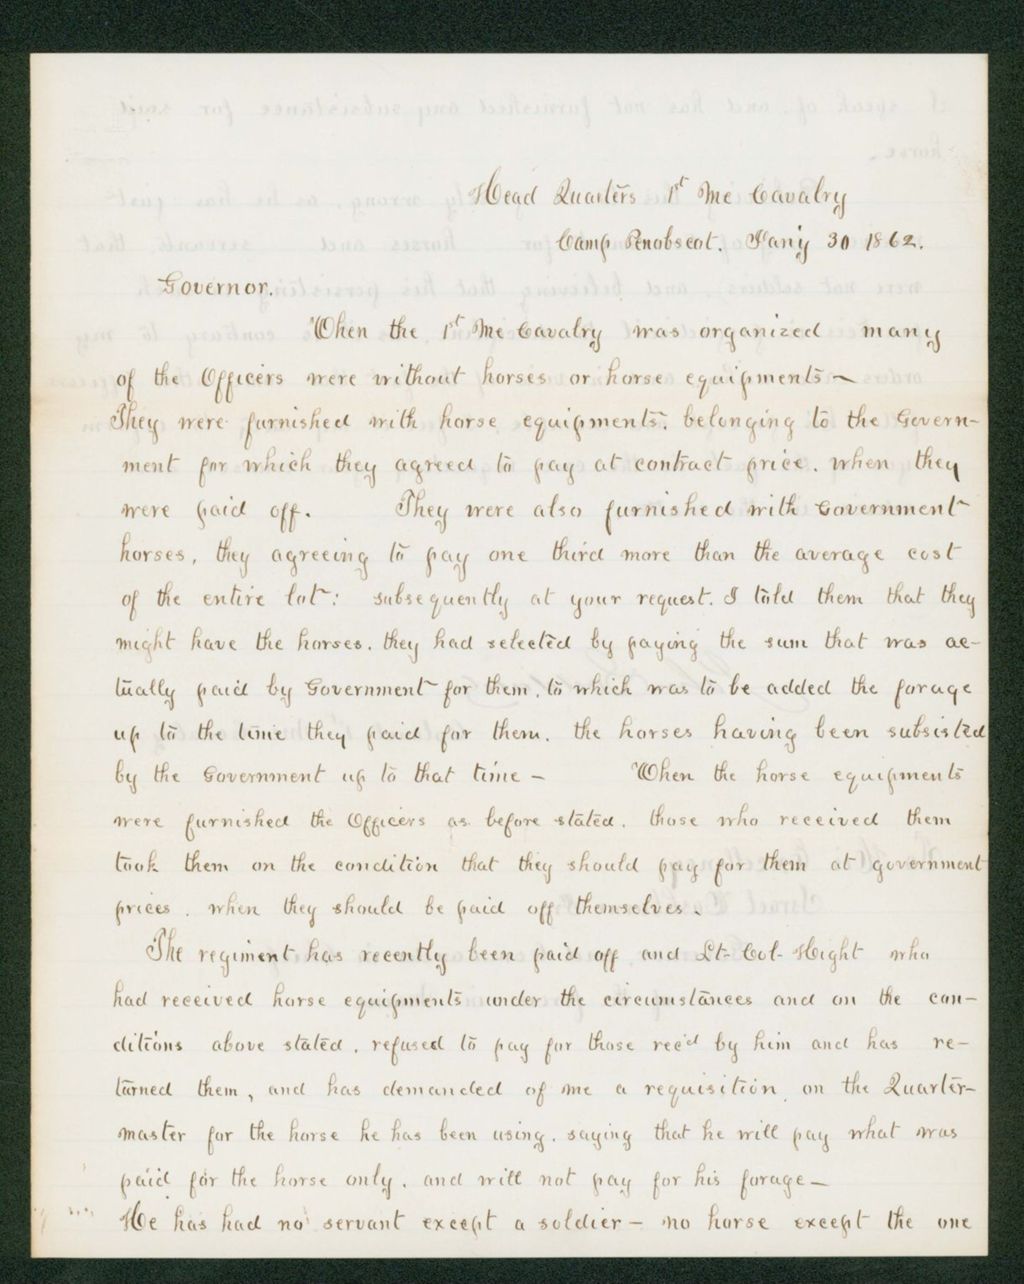 Head Quarters 1st Me Cavalry
Camp Penobscot. Jany 30 1862.
Governor.
When the 1st Me Cavalry was organized many
of the Officers were without horses or horse equipments—
They were furnished with horse equipments, belonging to the Govern-
ment for which they agreed to pay at contract price, when they
were paid off. They were also furnished with Government
horses, they agreeing to pay one third more than the average cost
of the entire lot: subsequently at your request. I told them that they
might have the horses, they had selected by paying the sum that was ac-
tually paid by Government for them, to which was to be added the forage
up to the time they paid for them, the horses having been subsisted
by the Government up to that time — When the horse equipments
were furnished the Officers as before stated, those who received them
took them on the condition that they should pay for them at government
prices, when they should be paid off themselves.
The regiment has recently been paid off, and Lt- Col- Hight who
had received horse equipments under the circumstances and on the con-
ditions above stated, refused to pay for those rec'd by him and has re-
turned them, and has demanded of me a requisition, on the Quarter-
master for the horse he has been using, saying that he will pay what was
paid for the horse only, and will not pay for his forage—
He has had no servant except a soldier — no horse except the one